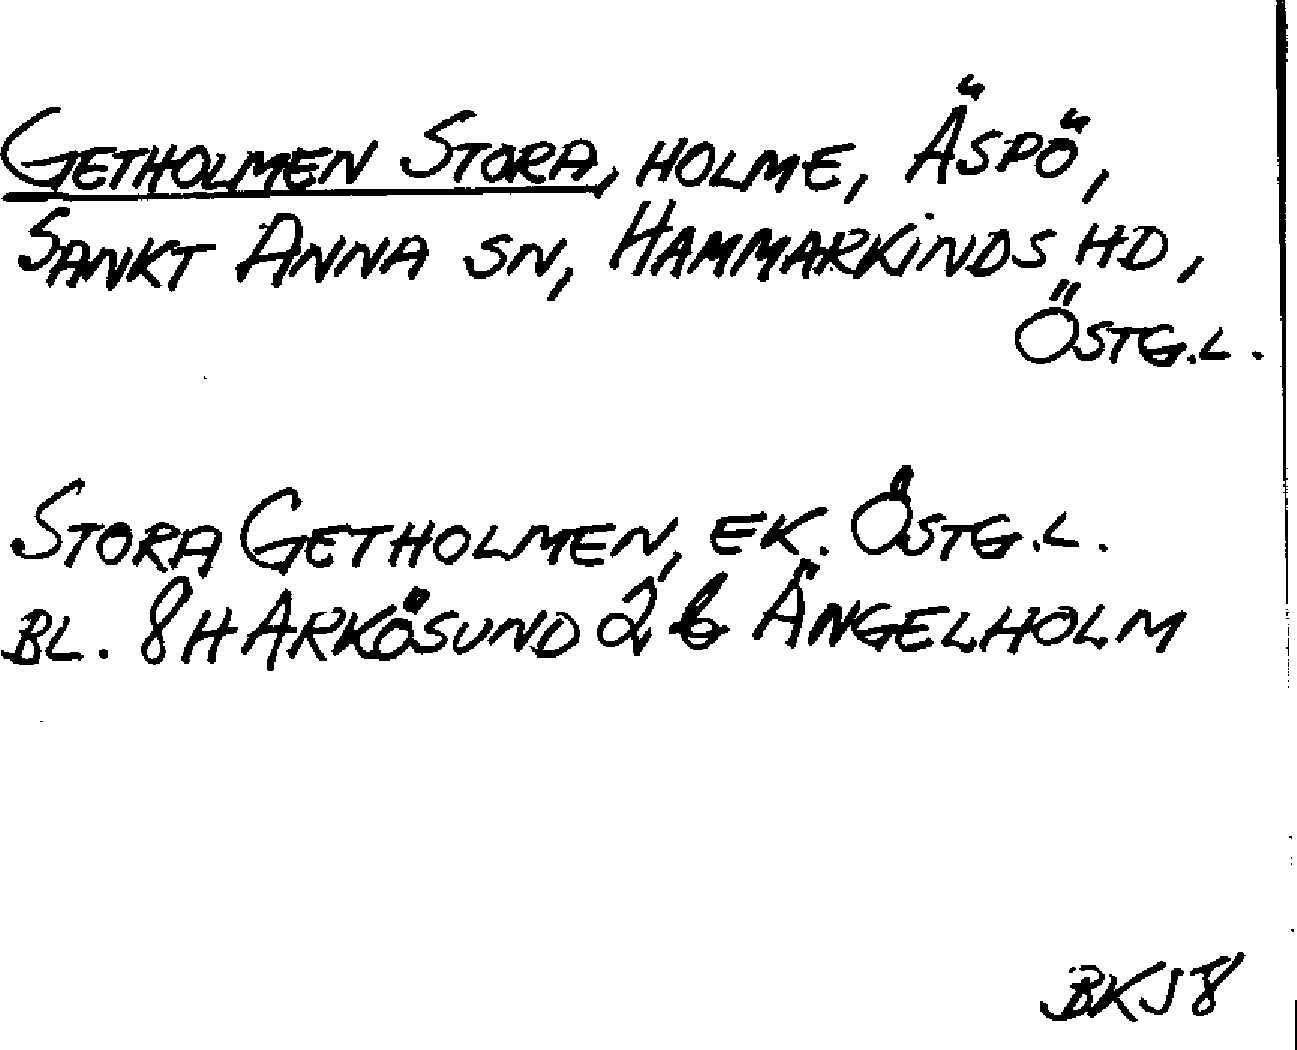 GETHOLMEN STORA, HOLME, ÄSPÖ,
SANKT ANNA SN, HAMMARKINDS HD,
ÖSTG.L.
STORA GETHOLMEN, EK. ÖSTG.L.
BL. 8H ARKÖSUND 2 b ÄNGELHOLM
BKJ 8